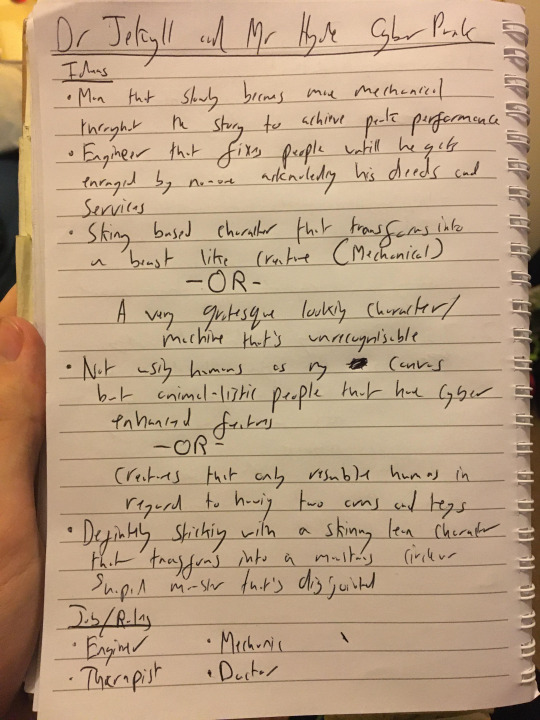 Dr Jekyll and Mr Hyde Cyber Punk
Ideas
• Man that slowly becomes more mechanical
throught the story to achieve peak performance
• Engineer that fixes people untill he gets
enraged by no-one acknowledging his deeds and
services
• Skinny based character that transforms into
a beast like creature (Mechanical)
-OR-
A very grotesque looking character/
machine that's unrecognisable
• Not using humans as my canvas
but animal-listic people that have cyber
enhanced features
-OR-
Creatures that only resemble humans in
regard to having two arms and legs
• Definitely sticking with a skinny lean character
that transforms into a
monster that's disjointed
Job/Roles
• Engineer • Mechanic
• Therapist • Doctor